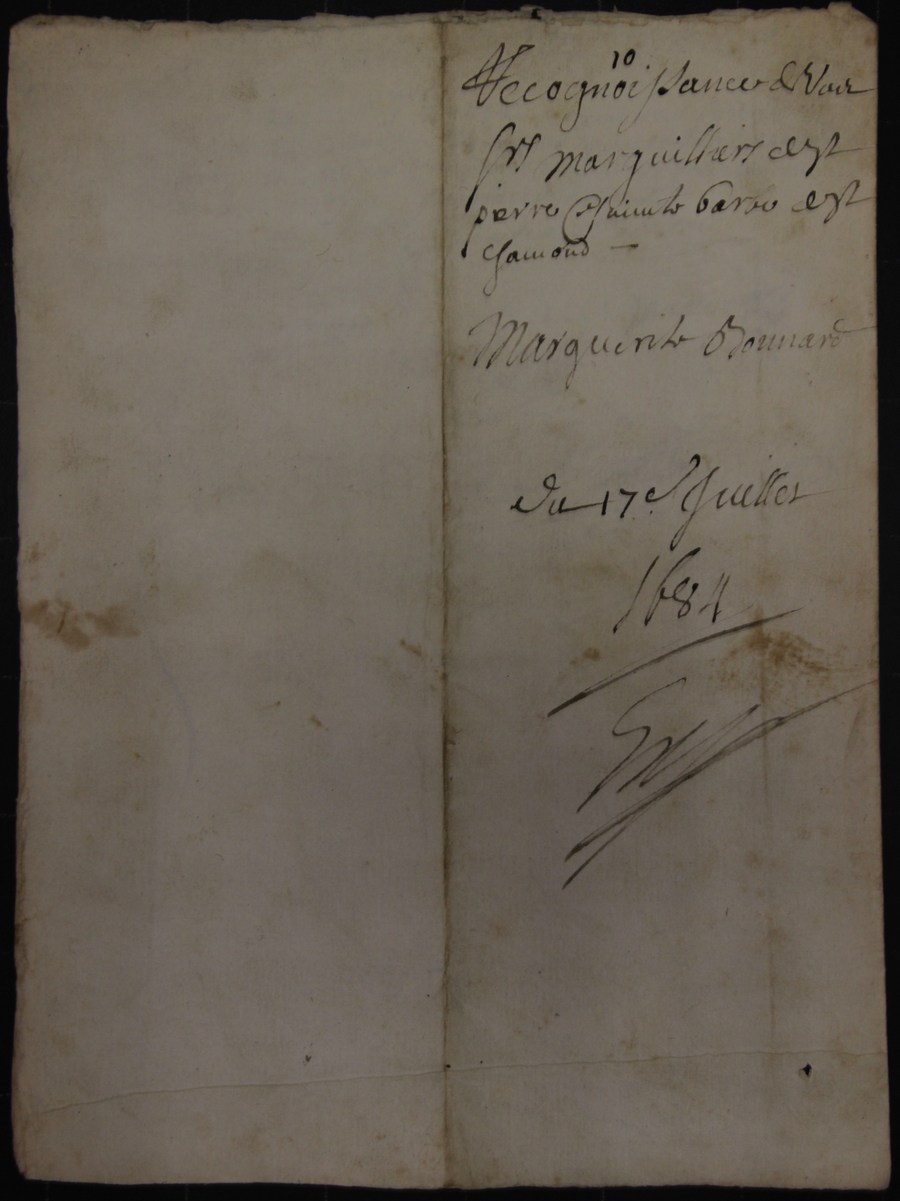 10
Recognoissance &
srs marguilliers de st
pierre & sainte barbe de st
chamond —
Marguerite Bonnard
du 17e Juillet
1684